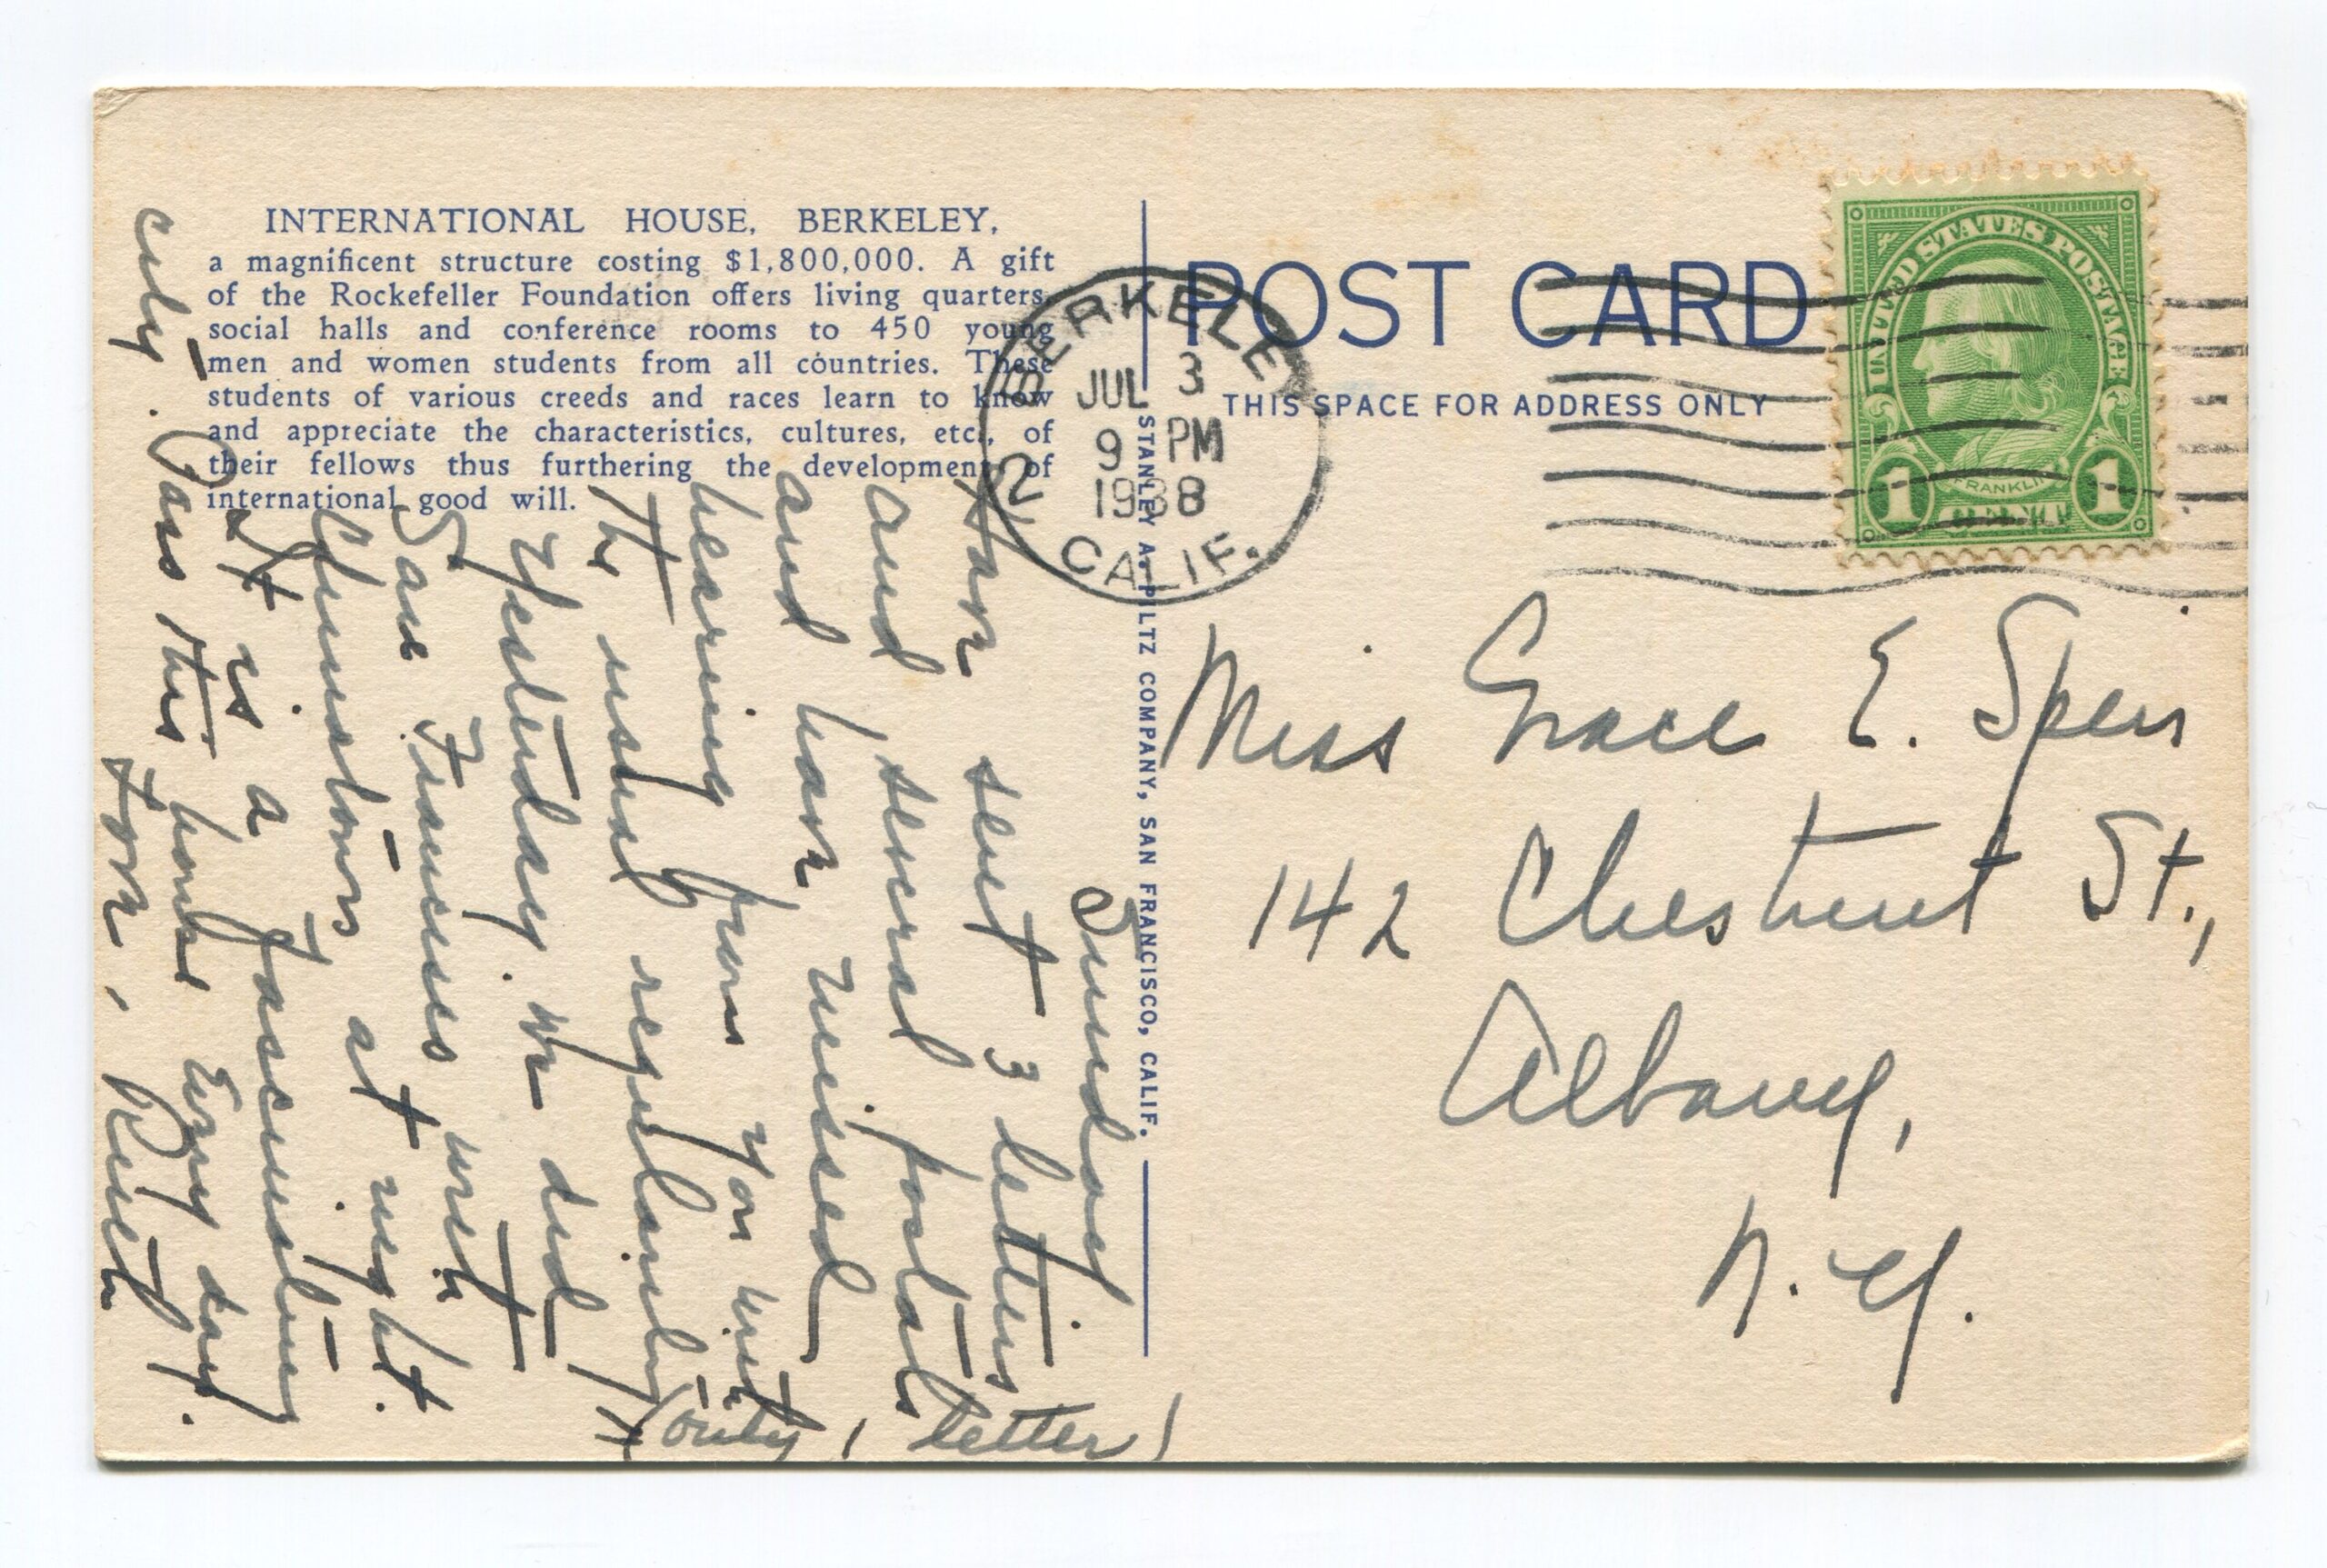 INTERNATIONAL HOUSE, BERKELEY,
a magnificent structure costing $1,800,000. A gift
of the Rockefeller Foundation offers living quarters,
social halls and conference rooms to 450 young
men and women students from all countries. These
students of various creeds and races learn to know
and appreciate the characteristics, cultures, etc., of
their fellows thus furthering the development of
international good will.
POST CARD
THIS SPACE FOR ADDRESS ONLY
STANLEY A. PILTZ COMPANY, SAN FRANCISCO, CALIF.
BERKELEY
JUL 3
9 PM
1938
2
CALIF.
UNITED STATES POSTAGE
FRANKLIN
1 CENT 1
Miss Grace E. Speir
142 Chestnut St.,
Albany,
N.Y.
Sunday
Have sent 3 letters
and several postals
and have missed
hearing from you with
the usual regularity
(only 1 letter)
Yesterday. We did
San Francisco with
at night.
It is a fascinating
city. Pass this house every day.
Love, Ruth